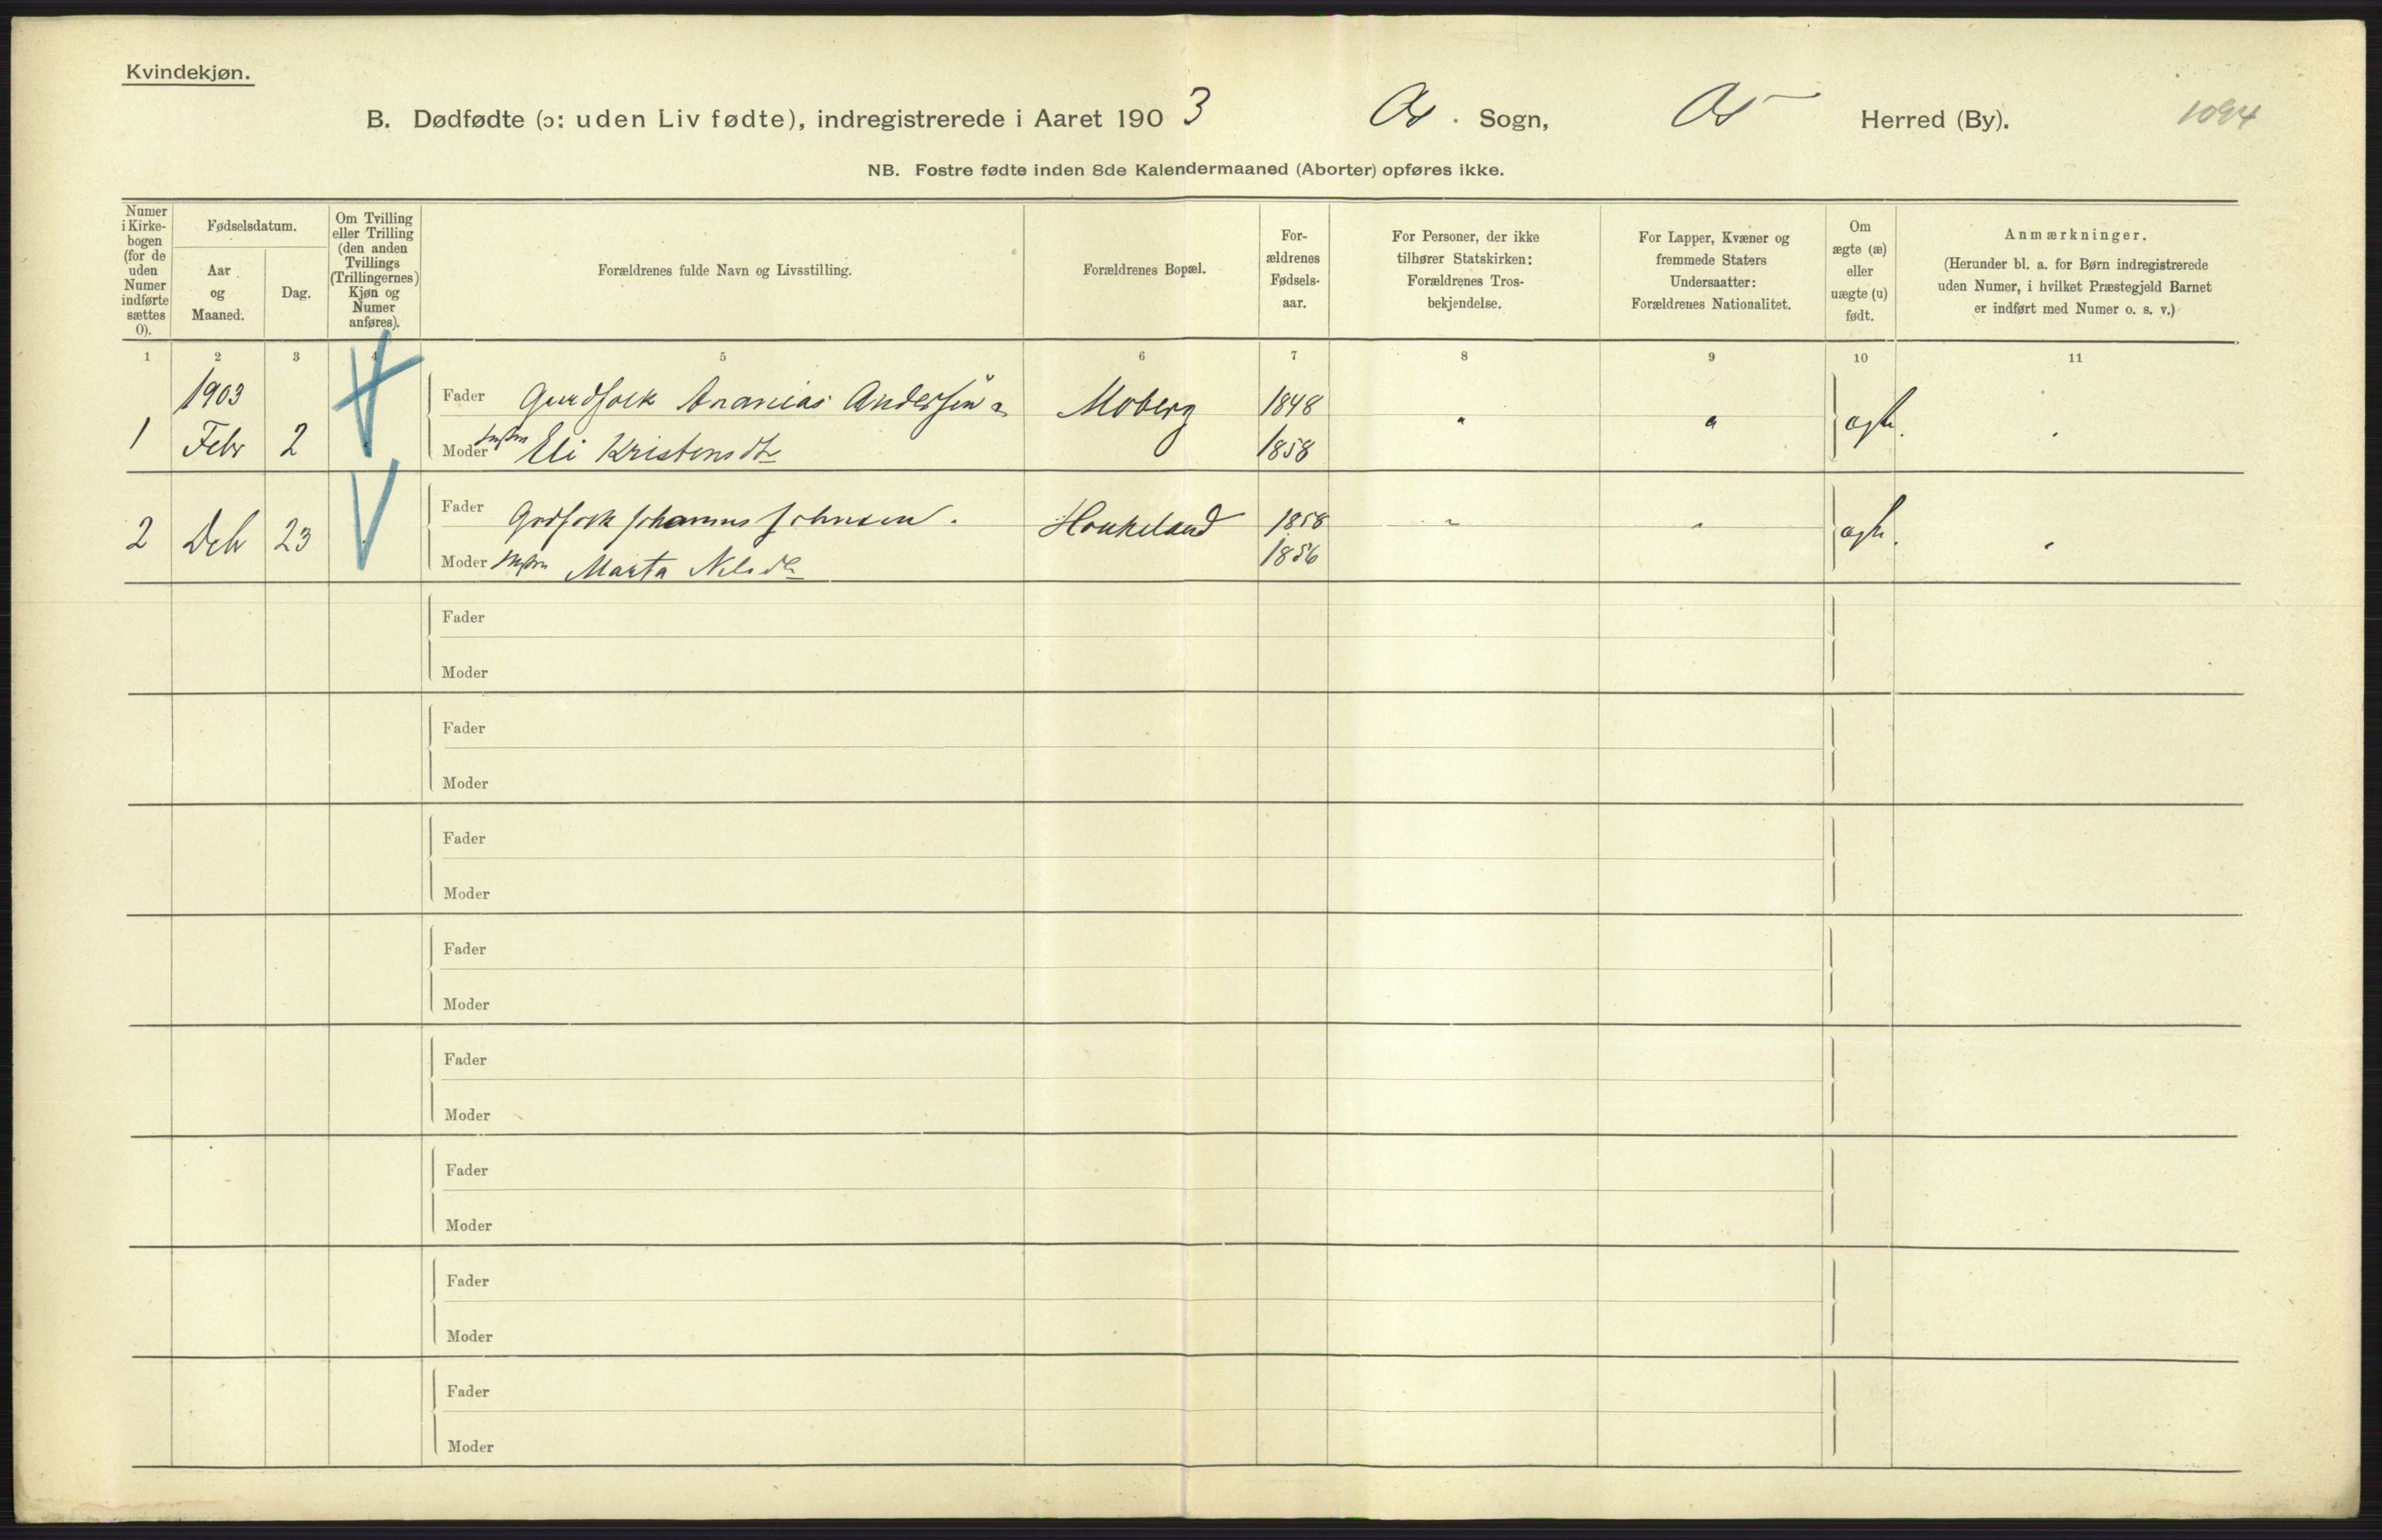 Kvindekjøn.
B. Dødfødte (ɔ: uden Liv fødte), indregistrerede i Aaret 1903 Os. Sogn, Os Herred (By). 1094
NB. Fostre fødte inden 8de Kalendermaaned (Aborter) opføres ikke.
Numer i Kirke-bogen (for de uden Numer indførte sættes 0).
Fødselsdatum.
Aar og Maaned.
Dag.
Om Tvilling eller Trilling (den anden Tvillings (Trillingernes) Kjøn og Numer anføres).
Forældrenes fulde Navn og Livsstilling.
Forældrenes Bopæl.
For-ældrenes Fødsels-aar.
For Personer, der ikke tilhører Statskirken: Forældrenes Tros-bekjendelse.
For Lapper, Kvæner og fremmede Staters Undersaatter: Forældrenes Nationalitet.
Om ægte (æ) eller uægte (u) født.
Anmærkninger.
(Herunder bl. a. for Børn indregistrerede uden Numer, i hvilket Præstegjeld Barnet er indført med Numer o. s. v.)
1 2 3 4 5 6 7 8 9 10 11
1903
Fader Gurdfolk Ananias Andersen & Moberg 1848 " "
1 Febr 2 Moder Eli Kristensdtr 1858 ægte.
Fader Grdfolk Johannes Johnsen. 1858 " "
2 Debr 23 Haukeland ægte.
Moder Marta Nelsdtr 1856
Fader
Moder
Fader
Moder
Fader
Moder
Fader
Moder
Fader
Moder
Fader
Moder
Fader
Moder
Fader
Moder